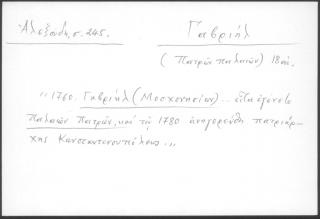 Ἀλεξουδ. σ. 245.
Γαβριήλ
(Πατρῶν παλαιῶν) 18 αἰ.
„1760. Γαβριήλ (Μοσχονησίων) .. εἶτα ἐγένετο
Παλαιῶν Πατρῶν, καί τῷ 1780 ἀνηγορεύθη πατριάρ-
χης Κωνσταντινουπόλεως.„